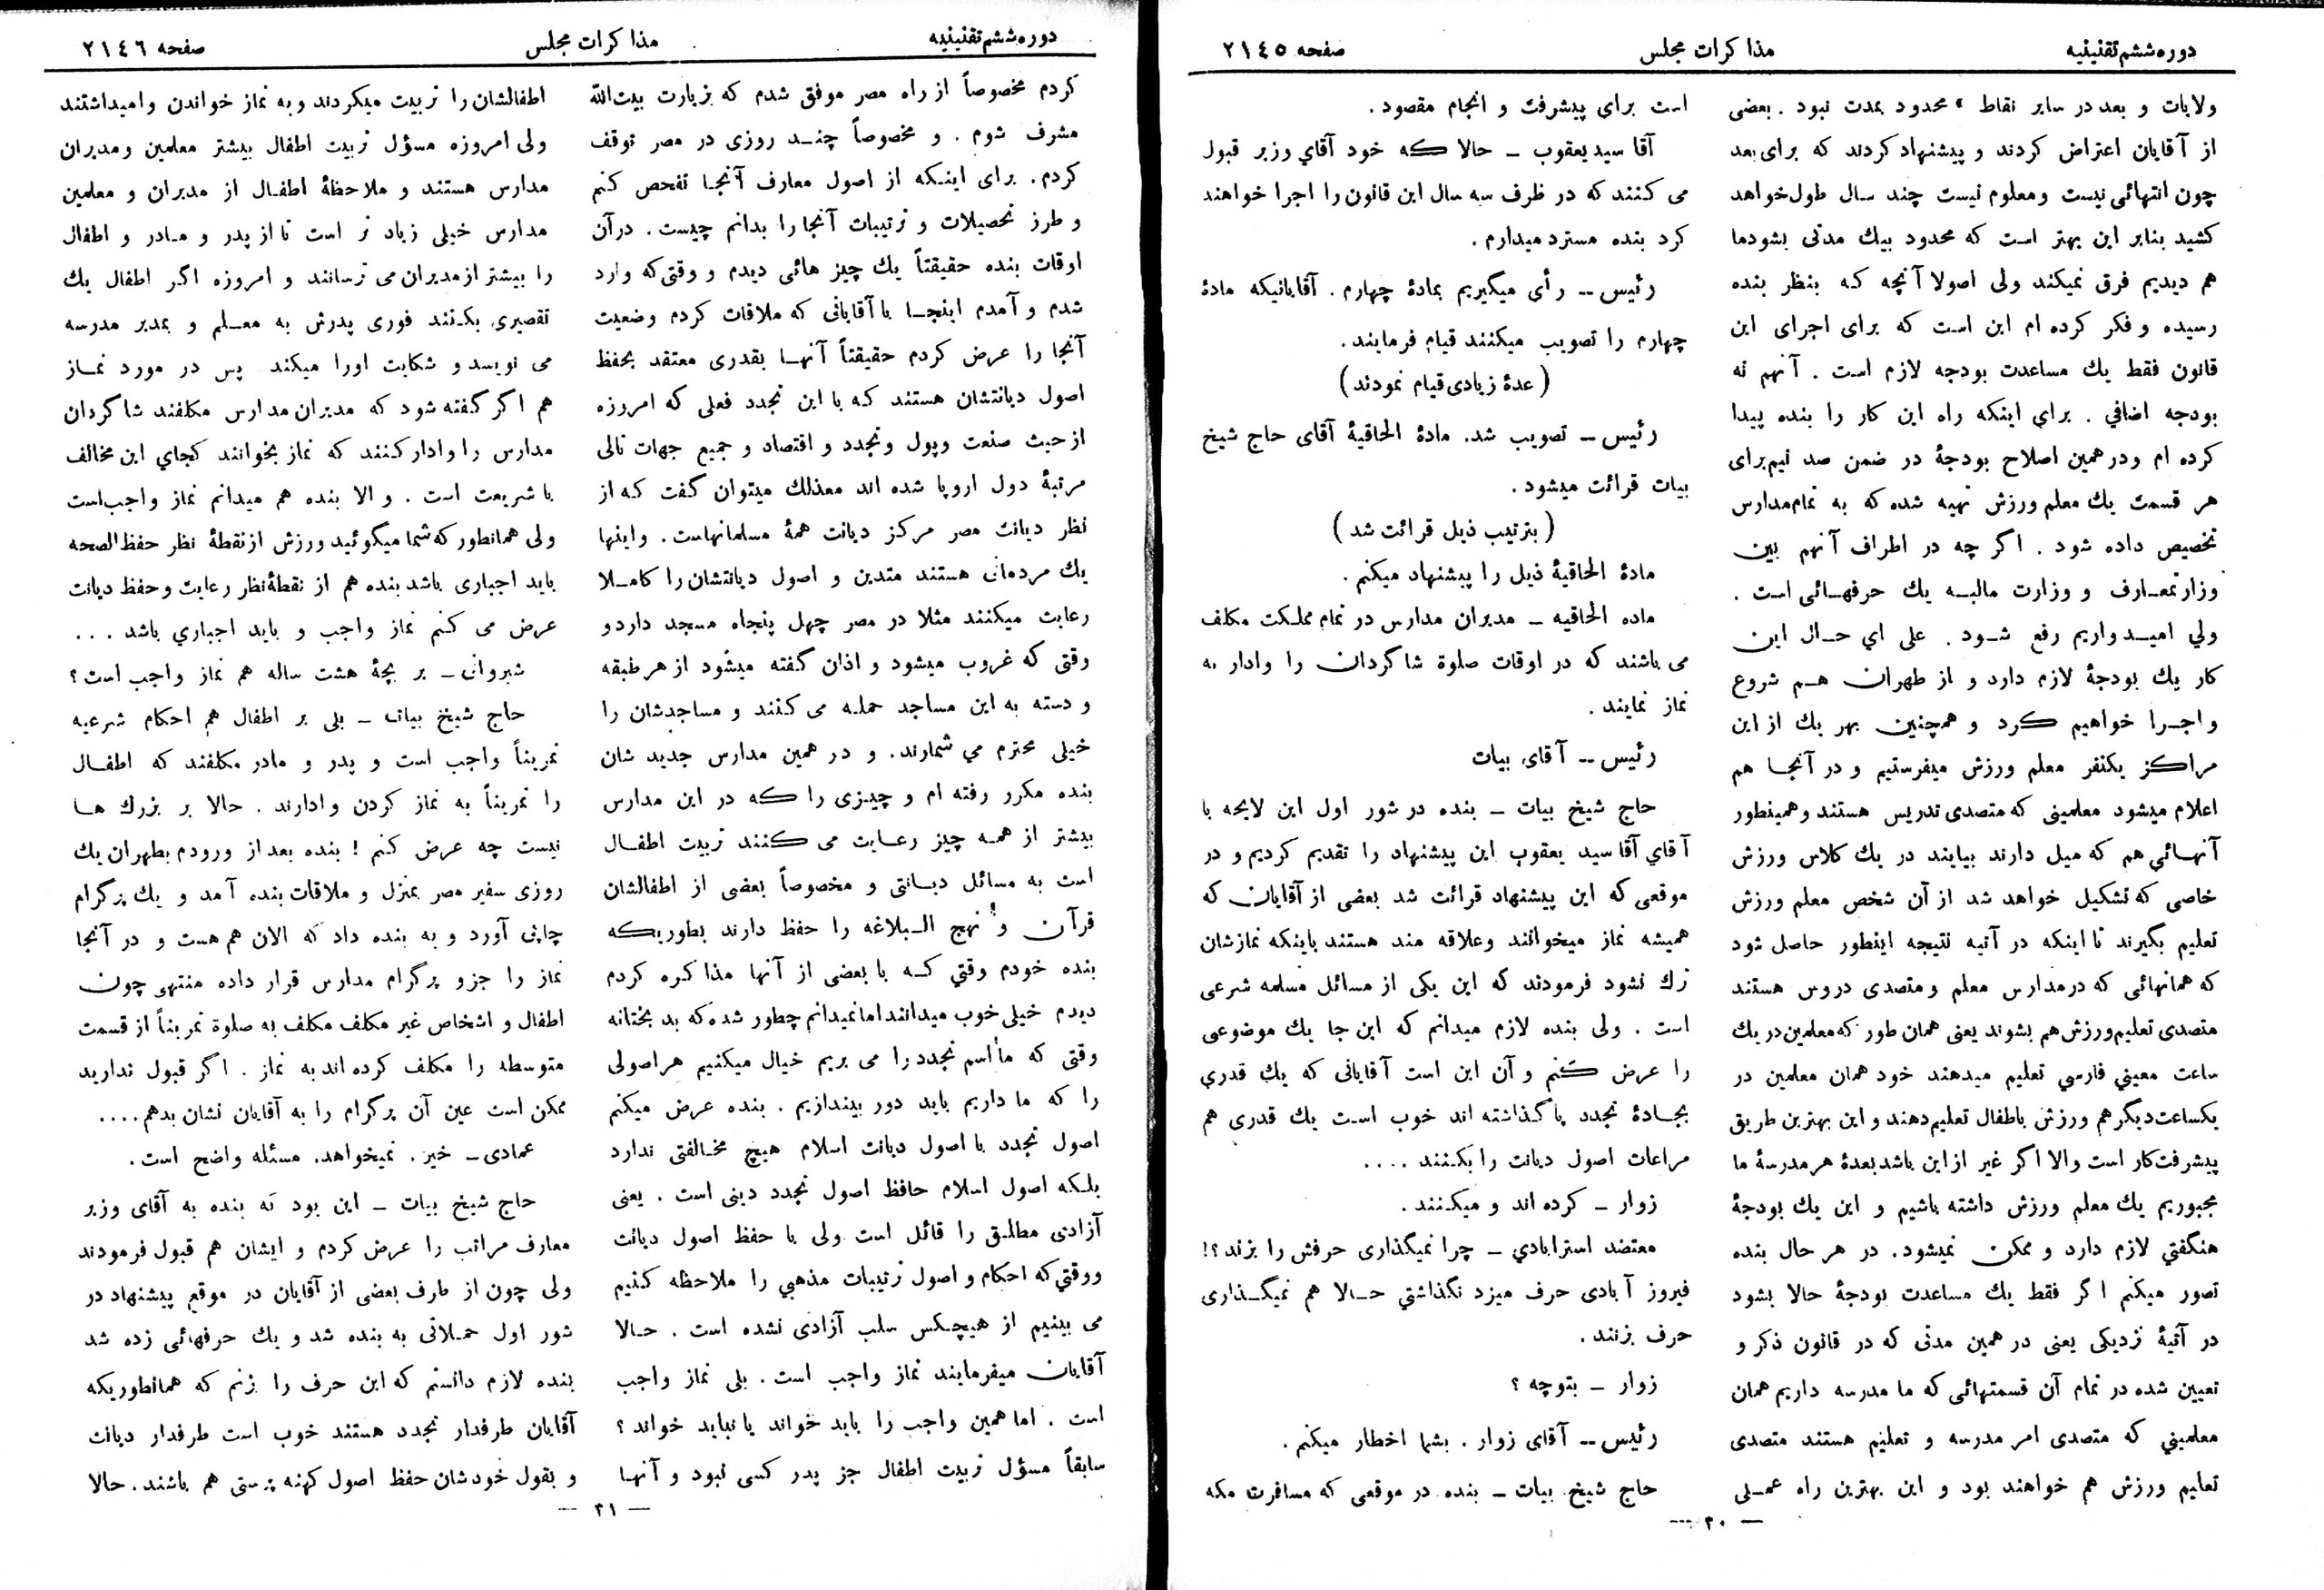 دوره ششم تقنینیه
مذاکرات مجلس
صفحه ۲۱٤٥
ولایات و بعد در سایر نقاط محدود بمدت نبود . بعضی
از آقایان اعتراض کردند و پیشنهاد کردند که برای بعد
چون انتهائی نیست ومعلوم نیست چند سال طول خواهد
کشید بنابر این بهتر است که محدود بیك مدتی بشود ما
هم دیدیم فرق نمیکند ولی اصولا آنچه که بنظر بنده
رسیده و فکر کرده ام این است که برای اجرای این
قانون فقط یك مساعدت بودجه لازم است . آنهم نه
بودجه اضافي . براي اینکه راه این کار را بنده پیدا
کرده ام ودر همین اصلاح بودجهٔ در ضمن صد نیم برای
هر قسمت یك معلم ورزش تهیه شده که به تمام مدارس
تخصیص داده شود . اگر چه در اطراف آنهم بین
وزارتمعارف و وزارت مالیه یك حرفهائی است .
ولي امیدواریم رفع شود . علی اي حال این
کار یك بودجهٔ لازم دارد و از طهران هم شروع
واجرا خواهیم کرد و همچنین بهر یك از این
مراکز یکنفر معلم ورزش میفرستیم و در آنجا هم
اعلام میشود معلمینی که متصدی تدریس هستند وهمینطور
آنهائي هم که میل دارند بیایند در یك کلاس ورزش
خاصی که تشکیل خواهد شد از آن شخص معلم ورزش
تعلیم بگیرند تا اینکه در آتیه نتیجه اینطور حاصل شود
که همانهائی که در مدارس معلم ومتصدی دروس هستند
متصدی تعلیم ورزش هم بشوند یعنی همان طور که معلمین در یك
ساعت معینی فارسي تعلیم میدهند خود همان معلمین در
یکساعت دیگر هم ورزش باطفال تعلیم دهند و این بهترین طریق
پیشرفت کار است والا اگر غیر از این باشد بعدهٔ هر مدرسهٔ ما
مجبوریم یك معلم ورزش داشته باشیم و این یك بودجهٔ
هنگفتي لازم دارد و ممکن نمیشود. در هر حال بنده
تصور میکنم اگر فقط یك مساعدت بودجهٔ حالا بشود
در آتیهٔ نزدیکی یعنی در همین مدتی که در قانون ذکر و
تعیین شده در تمام آن قسمتهائی که ما مدرسه داریم همان
معلمیني که متصدی امر مدرسه و تعلیم هستند متصدی
تعلیم ورزش هم خواهند بود و این بهترین راه عملی
است برای پیشرفت و انجام مقصود .
آقا سید یعقوب ــ حالا که خود آقاي وزیر قبول
می کنند که در ظرف سه سال این قانون را اجرا خواهند
کرد بنده مسترد میدارم .
رئیس ــ رأی میگیریم بمادهٔ چهارم . آقایانیکه مادهٔ
چهارم را تصویب میکنند قیام فرمایند .
( عدهٔ زیادی قیام نمودند )
رئیس ــ تصویب شد. مادهٔ الحاقیهٔ آقای حاج شیخ
بیات قرائت میشود .
( بترتیب ذیل قرائت شد )
مادهٔ الحاقیهٔ ذیل را پیشنهاد میکنم .
ماده الحاقیه ــ مدیران مدارس در تمام مملکت مکلف
می باشند که در اوقات صلوة شاگردان را وادار به
نماز نمایند .
رئیس ــ آقای بیات
حاج شیخ بیات ــ بنده در شور اول این لایحه با
آقاي آقا سید یعقوب این پیشنهاد را تقدیم کردیم و در
موقعی که این پیشنهاد قرائت شد بعضی از آقایان که
همیشه نماز میخوانند وعلاقه مند هستند باینکه نمازشان
ترك نشود فرمودند که این یکی از مسائل مسلمه شرعی
است . ولی بنده لازم میدانم که این جا یك موضوعی
را عرض کنم و آن این است آقایانی که یك قدري
بجادهٔ تجدد پا گذاشته اند خوب است یك قدری هم
مراعات اصول دیانت را بکنند ....
زوار ــ کرده اند و میکنند .
معتضد استرابادي ــ چرا نمیگذاری حرفش را بزند؟!
فیروز آبادی حرف میزد نگذاشتي حالا هم نمیگذاری
حرف بزنند .
زوار ــ بتوچه ؟
رئیس ــ آقای زوار . بشما اخطار میکنم .
حاج شیخ بیات ــ بنده در موقعی که مسافرت مکه
— ۲۰ —
دوره ششم تقنینیه
مذاکرات مجلس
صفحه ۲۱٤٦
کردم مخصوصاً از راه مصر موفق شدم که بزیارت بیت‌الله
مشرف شوم . و مخصوصاً چند روزی در مصر توقف
کردم. برای اینکه از اصول معارف آنجا تفحص کنم
و طرز تحصیلات و ترتیبات آنجا را بدانم چیست . در آن
اوقات بنده حقیقتاً یك چیز هائی دیدم و وقتی که وارد
شدم و آمدم اینجا با آقایانی که ملاقات کردم وضعیت
آنجا را عرض کردم حقیقتاً آنها بقدری معتقد بحفظ
اصول دیانتشان هستند که با این تجدد فعلی که امروزه
از حیث صنعت وپول وتجدد و اقتصاد و جمیع جهات تالی
مرتبهٔ دول اروپا شده اند معذلك میتوان گفت که از
نظر دیانت مصر مرکز دیانت همهٔ مسلمانهاست . واینها
یك مردمانی هستند متدین و اصول دیانتشان را کاملا
رعایت میکنند مثلا در مصر چهل پنجاه مسجد دارد و
وقتی که غروب میشود و اذان گفته میشود از هر طبقه
و دسته به این مساجد حمله می کنند و مساجدشان را
خیلی محترم می شمارند. و در همین مدارس جدید شان
بنده مکرر رفته ام و چیزی را که در این مدارس
بیشتر از همه چیز رعایت می کنند تربیت اطفال
است به مسائل دیانتی و مخصوصاً بعضی از اطفالشان
قرآن و نهج البلاغه را حفظ دارند بطوریکه
بنده خودم وقتي که با بعضی از آنها مذاکره کردم
دیدم خیلی خوب میدانند اما نمیدانم چطور شده که بد بختانه
وقتی که ما اسم تجدد را می بریم خیال میکنیم هر اصولی
را که ما داریم باید دور بیندازیم . بنده عرض میکنم
اصول تجدد با اصول دیانت اسلام هیچ مخالفتی ندارد
بلکه اصول اسلام حافظ اصول تجدد دینی است . یعنی
آزادی مطلق را قائل است ولی با حفظ اصول دیانت
ووقتي که احکام و اصول ترتیبات مذهبي را ملاحظه کنیم
می بینیم از هیچکس سلب آزادی نشده است . حالا
آقایان میفرمایند نماز واجب است . بلی نماز واجب
است . اما همین واجب را باید خواند یا نباید خواند ؟
سابقاً مسؤل تربیت اطفال جز پدر کسی نبود و آنها
اطفالشان را تربیت میکردند و به نماز خواندن وامیداشتند
ولی امروزه مسؤل تربیت اطفال بیشتر معلمین ومدیران
مدارس هستند و ملاحظهٔ اطفال از مدیران و معلمین
مدارس خیلی زیاد تر است تا از پدر و مادر و اطفال
را بیشتر از مدیران می ترسانند و امروزه اگر اطفال یك
تقصیری بکنند فوری پدرش به معلم و بمدیر مدرسه
می نویسد و شکایت اورا میکند پس در مورد نماز
هم اگر گفته شود که مدیران مدارس مکلفند شاگردان
مدارس را وادار کنند که نماز بخوانند کجاي این مخالف
با شریعت است . و الا بنده هم میدانم نماز واجب است
ولی همانطور که شما میگوئید ورزش از نقطهٔ نظر حفظ الصحه
باید اجباری باشد بنده هم از نقطهٔ نظر رعایت و حفظ دیانت
عرض می کنم نماز واجب و باید اجباري باشد ...
شیروانی ــ بر بچهٔ هشت ساله هم نماز واجب است ؟
حاج شیخ بیات ــ بلی بر اطفال هم احکام شرعیه
تمریناً واجب است و پدر و مادر مکلفند که اطفال
را تمریناً به نماز کردن وادارند . حالا بر بزرك ها
نیست چه عرض کنم ! بنده بعد از ورودم بطهران یك
روزی سفیر مصر بمنزل و ملاقات بنده آمد و یك پرگرام
چاپی آورد و به بنده داد که الان هم هست و در آنجا
نماز را جزو پرگرام مدارس قرار داده منتهی چون
اطفال و اشخاص غیر مکلف مکلف به صلوة تمریناً از قسمت
متوسطه را مکلف کرده اند به نماز . اگر قبول ندارید
ممکن است عین آن پرگرام را به آقایان نشان بدهم ....
عمادی ــ خیر . نمیخواهد. مسئله واضح است .
حاج شیخ بیات ــ این بود که بنده به آقای وزیر
معارف مراتب را عرض کردم و ایشان هم قبول فرمودند
ولی چون از طرف بعضی از آقایان در موقع پیشنهاد در
شور اول حملاتی به بنده شد و یك حرفهائی زده شد
بنده لازم دانستم که این حرف را بزنم که همانطوریکه
آقایان طرفدار تجدد هستند خوب است طرفدار دیانت
و بقول خودشان حفظ اصول کهنه پرستی هم باشند . حالا
— ۲۱ —